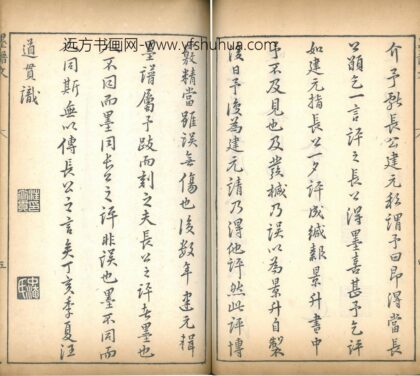 介予長公建元謂予曰即得當長
公乞一言評之長公得墨喜甚予乞評
如建元指長公一夕評成緘報景升書中
予不及見也及發緘乃誤以為景升自製
後日予復為建元請乃得他評然此評博
精當雖誤毋傷也後數年建元緝
墨譜屬予跋而刻之夫長公之評在墨也
不同而墨同長公之評非誤也墨不同而
同斯無以傳長公之言矣丁亥季夏汪
道貫識
远方书画网-www.yfshuhua.com